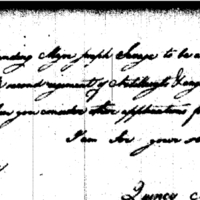 nding Mjr Joseph Savage to be a
second regiment of Artillery I ev
you consider other applications f
I am Sir your ob
Quincy